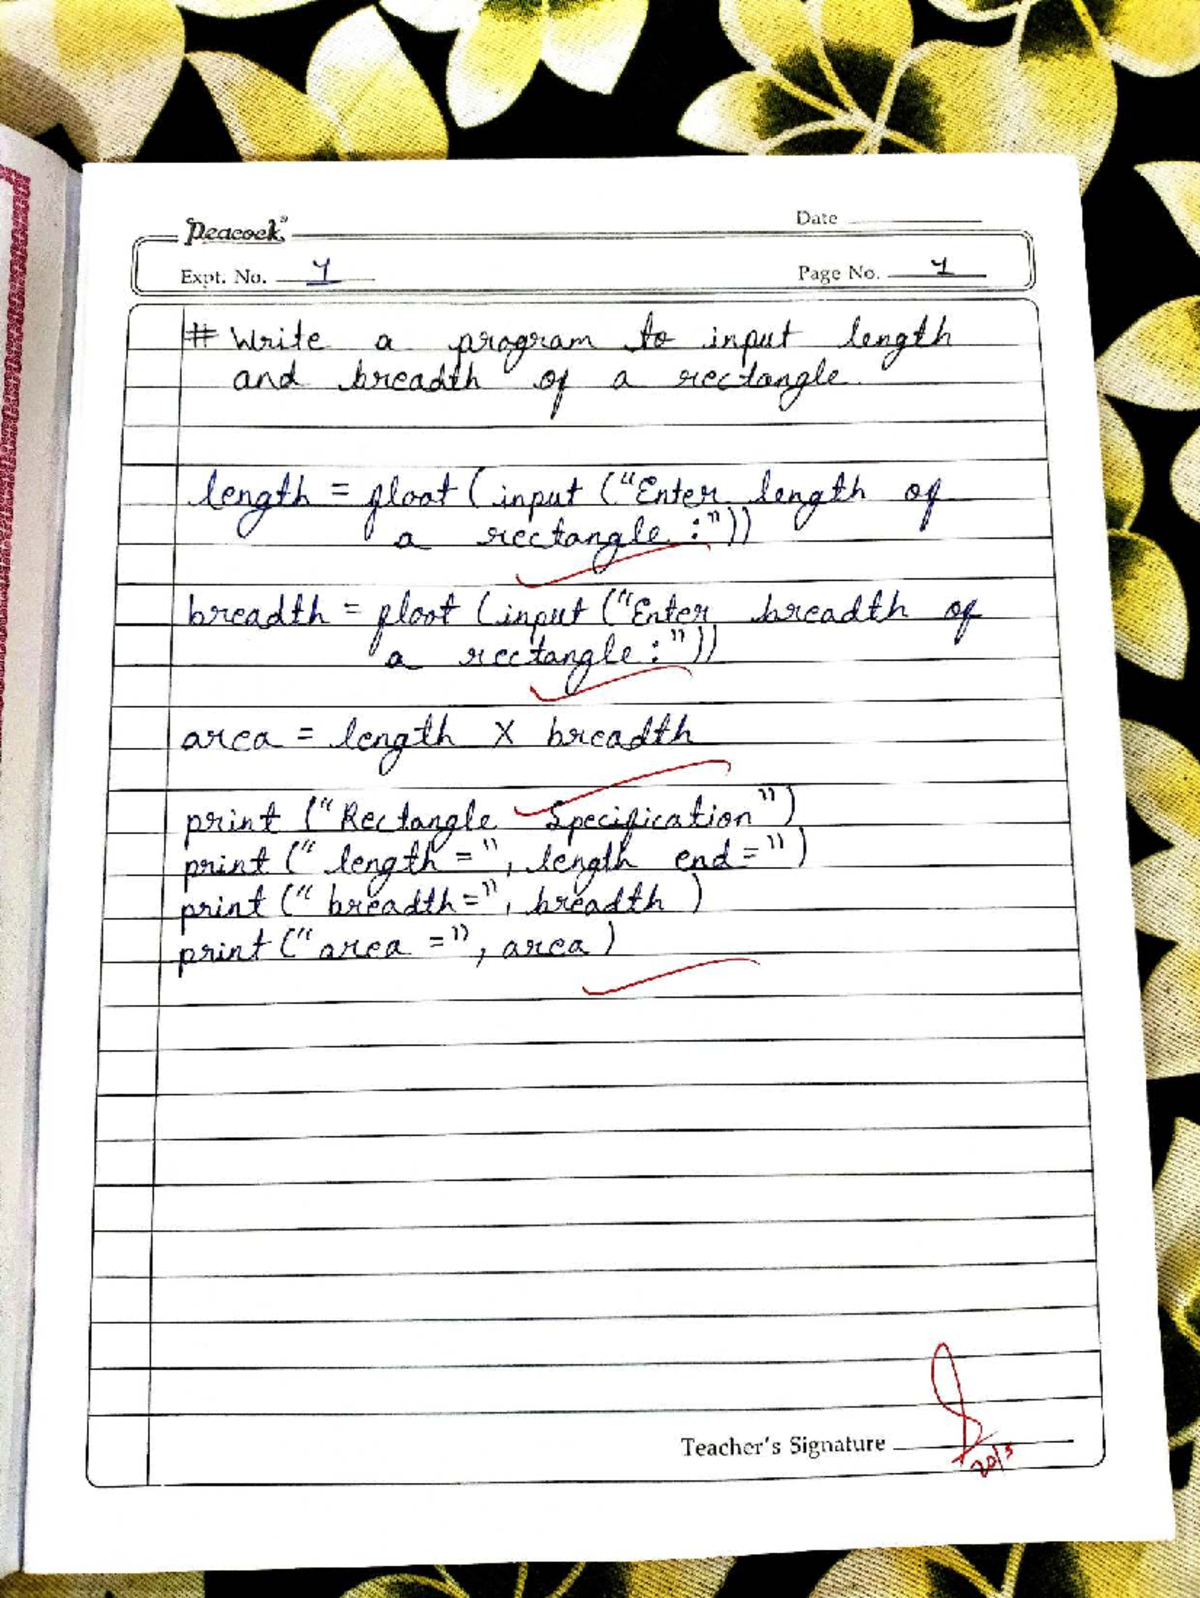 Peacock
Date
Expt. No. 1
Page No. 1
# Write a program to input length
and breadth of a rectangle.
length = float (input ("Enter length of
a rectangle :"))
breadth = float (input ("Enter breadth of
a rectangle :"))
area = length X breadth
print ("Rectangle Specification")
print (" length =", length end =")
print (" breadth=", breadth )
print ("area =", area )
Teacher's Signature
20/5